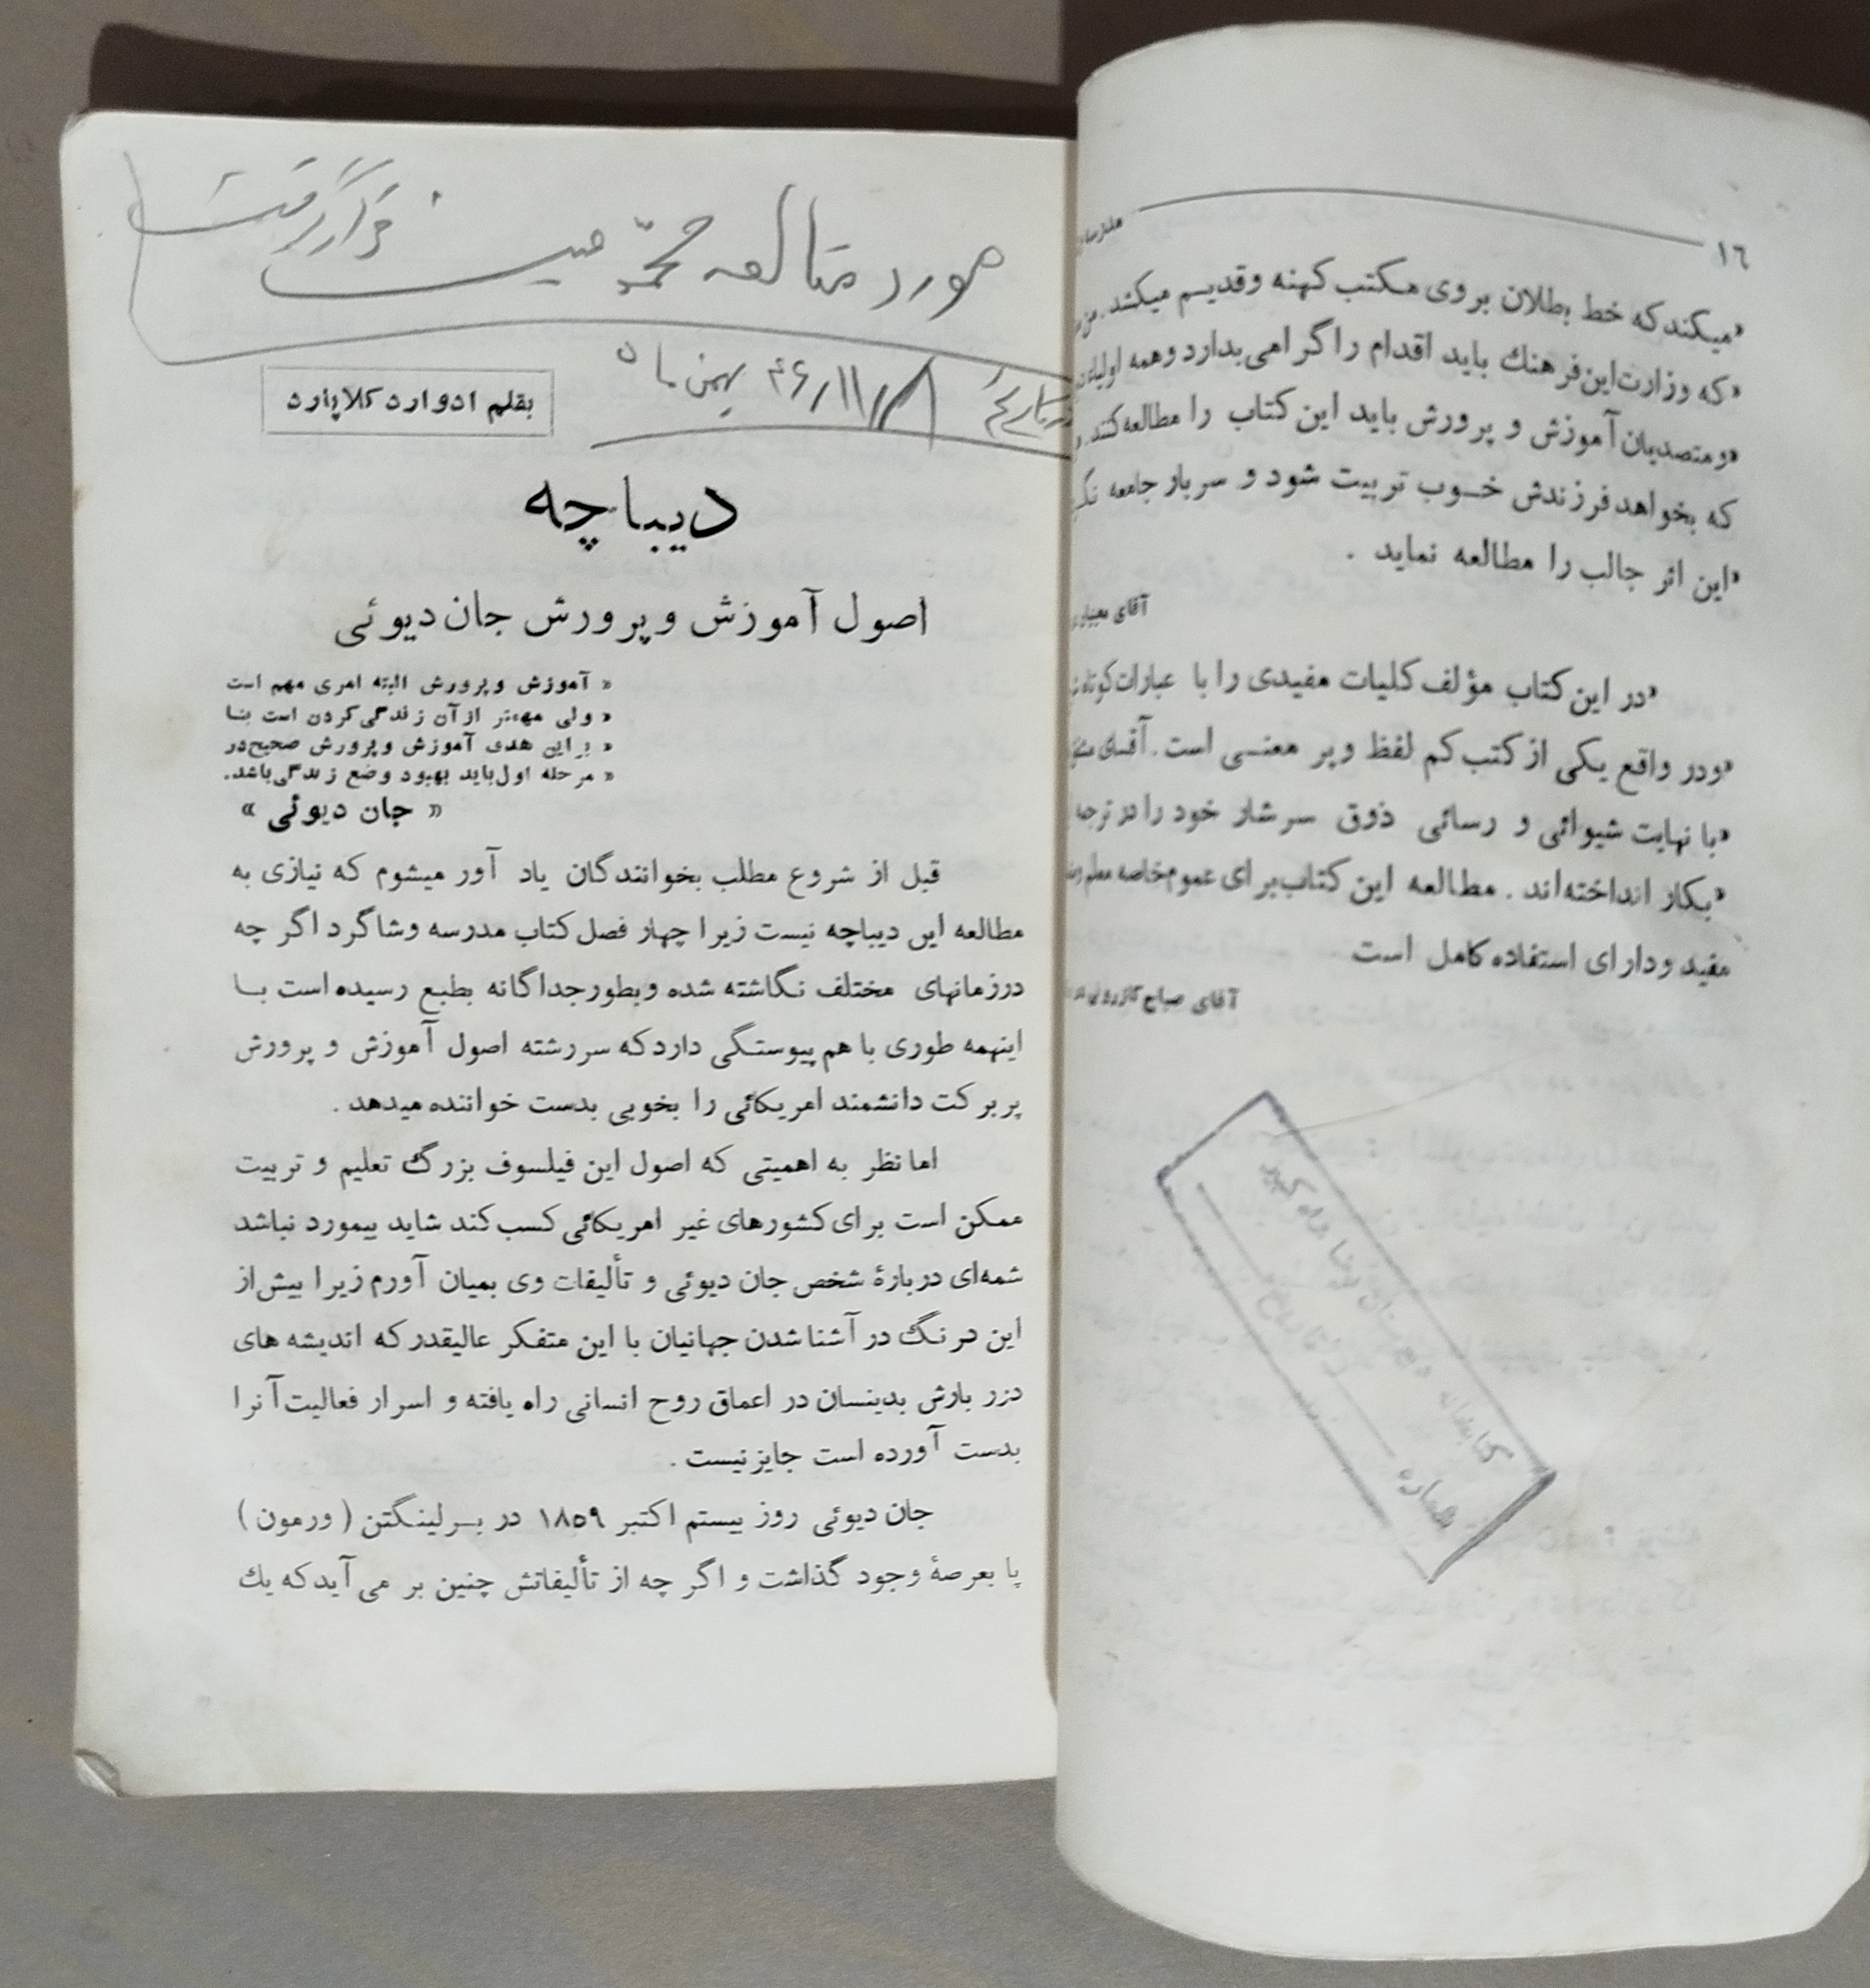 ١٦
«میکند که خط بطلان بروی مکتب کهنه وقدیم میکشد.
«که وزارت این فرهنك باید اقدام را گرامی بدارد وهمه اولیاء
«ومتصدیان آموزش و پرورش باید این کتاب را مطالعه کنند.
که بخواهد فرزندش خوب تربیت شود و سربار جامعه
«این اثر جالب را مطالعه نماید .
آقای
«در این کتاب مؤلف کلیات مفیدی را با عبارات کوتاه
«ودر واقع یکی از کتب کم لفظ وپر معنی است. آقای
«با نهایت شیوائی و رسائی ذوق سرشار خود را در ترجمه
«بکار انداخته‌اند . مطالعه این کتاب برای عموم خاصه معلم
مفید ودارای استفاده کامل است
آقای صباح کازرونی
کتابخانه دبیرستان
شماره
مورد متالعه محمّد
قرار گرفت
۴۶/۱۱/ بهمن ماه
بقلم ادوارد کلاپارد
دیباچه
اصول آموزش و پرورش جان دیوئی
« آموزش و پرورش البته امری مهم است
« ولی مهمتر از آن زندگی کردن است بنا
« براین هدف آموزش و پرورش صحیح در
« مرحله اول باید بهبود وضع زندگی باشد.
« جان دیوئی »
قبل از شروع مطلب بخوانندگان یاد آور میشوم که نیازی به
مطالعه این دیباچه نیست زیرا چهار فصل کتاب مدرسه وشاگرد اگر چه
درزمانهای مختلف نگاشته شده وبطورجداگانه بطبع رسیده است بـا
اینهمه طوری با هم پیوستگی دارد که سررشته اصول آموزش و پرورش
پربرکت دانشمند امریکائی را بخوبی بدست خواننده میدهد .
اما نظر به اهمیتی که اصول این فیلسوف بزرگ تعلیم و تربیت
ممکن است برای کشورهای غیر امریکائی کسب کند شاید بیمورد نباشد
شمه‌ای دربارهٔ شخص جان دیوئی و تألیفات وی بمیان آورم زیرا بیش از
این درنگ در آشنا شدن جهانیان با این متفکر عالیقدر که اندیشه های
درر بارش بدینسان در اعماق روح انسانی راه یافته و اسرار فعالیت آنرا
بدست آورده است جایز نیست .
جان دیوئی روز بیستم اکتبر ۱۸۵۹ در بـرلینگتن ( ورمون )
پا بعرصهٔ وجود گذاشت و اگر چه از تألیفاتش چنین بر می آید که یك